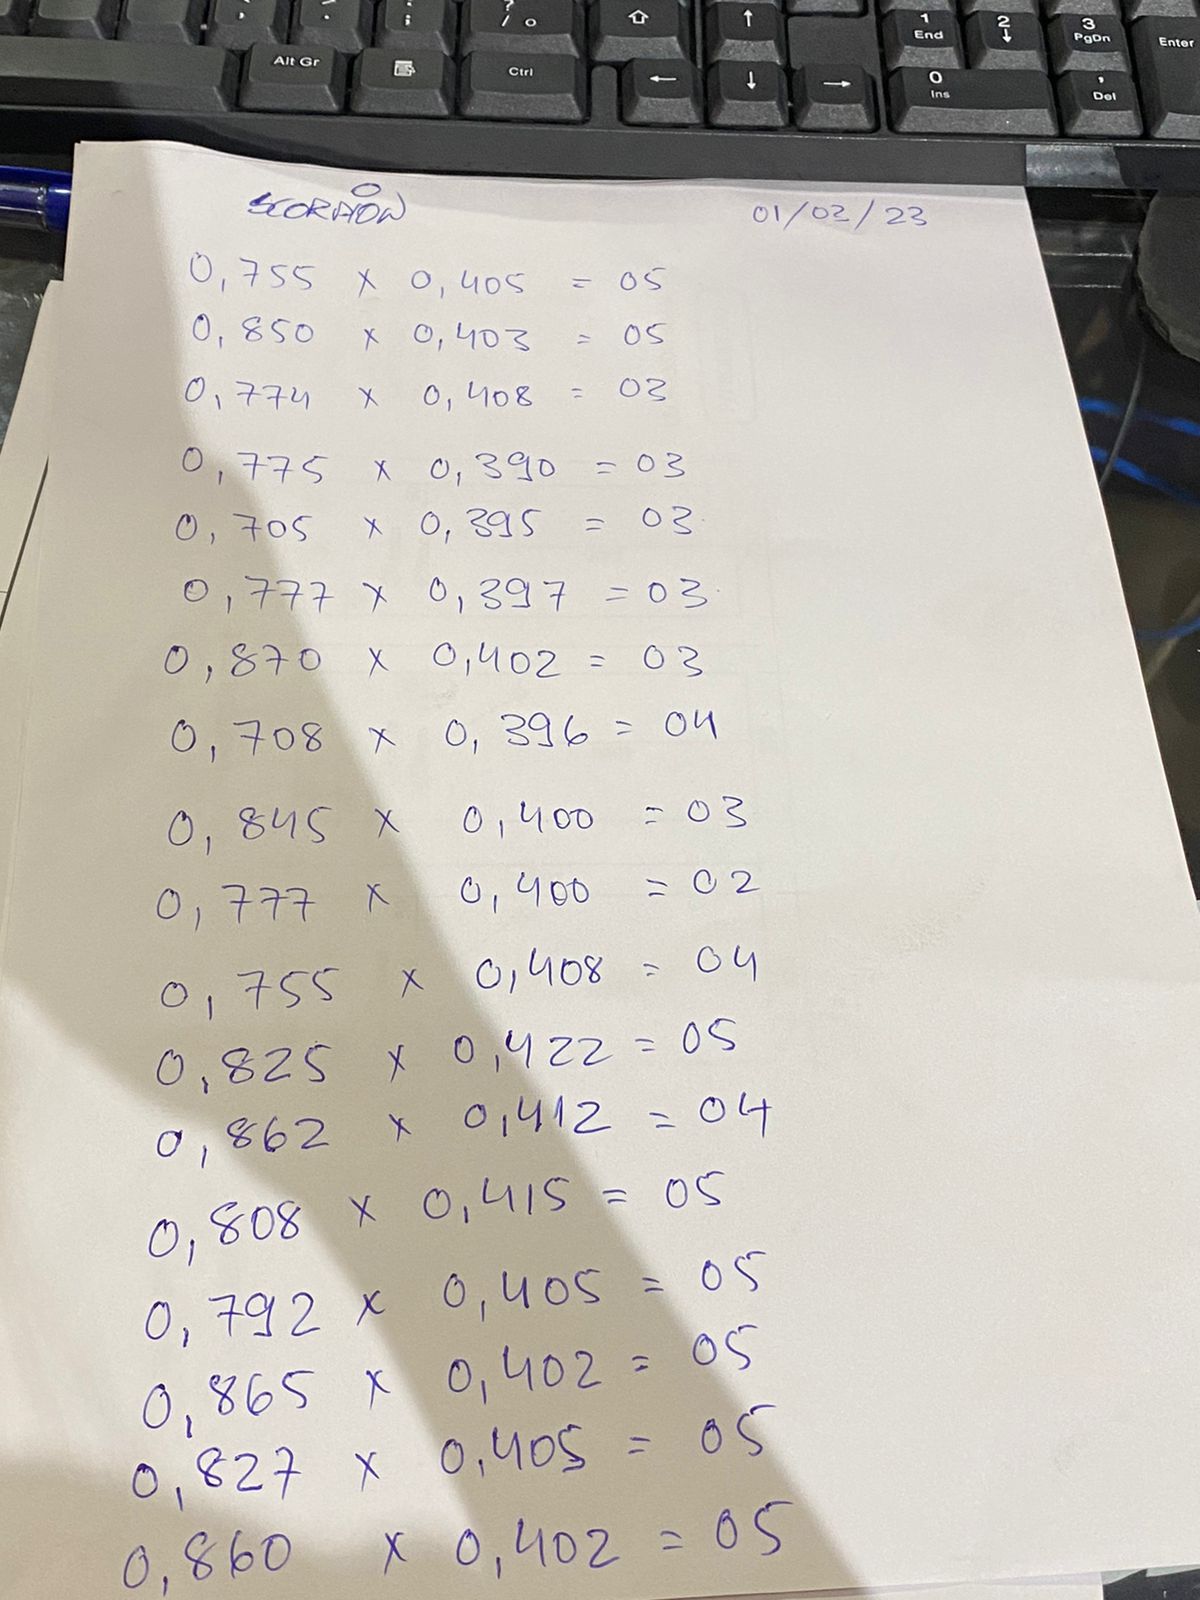 ? / O
1 End
2 ↓
3 PgDn
Enter
Alt Gr
Ctrl
0 Ins
, Del
SCORPION 01/02/23
0,755 x 0,405 = 05
0,850 x 0,403 = 05
0,774 x 0,408 = 03
0,775 x 0,390 = 03
0,705 x 0,395 = 03
0,777 x 0,397 = 03
0,870 x 0,402 = 03
0,708 x 0,396 = 04
0,845 x 0,400 = 03
0,777 x 0,400 = 02
0,755 x 0,408 = 04
0,825 x 0,422 = 05
0,862 x 0,412 = 04
0,808 x 0,415 = 05
0,792 x 0,405 = 05
0,865 x 0,402 = 05
0,827 x 0,405 = 05
0,860 x 0,402 = 05